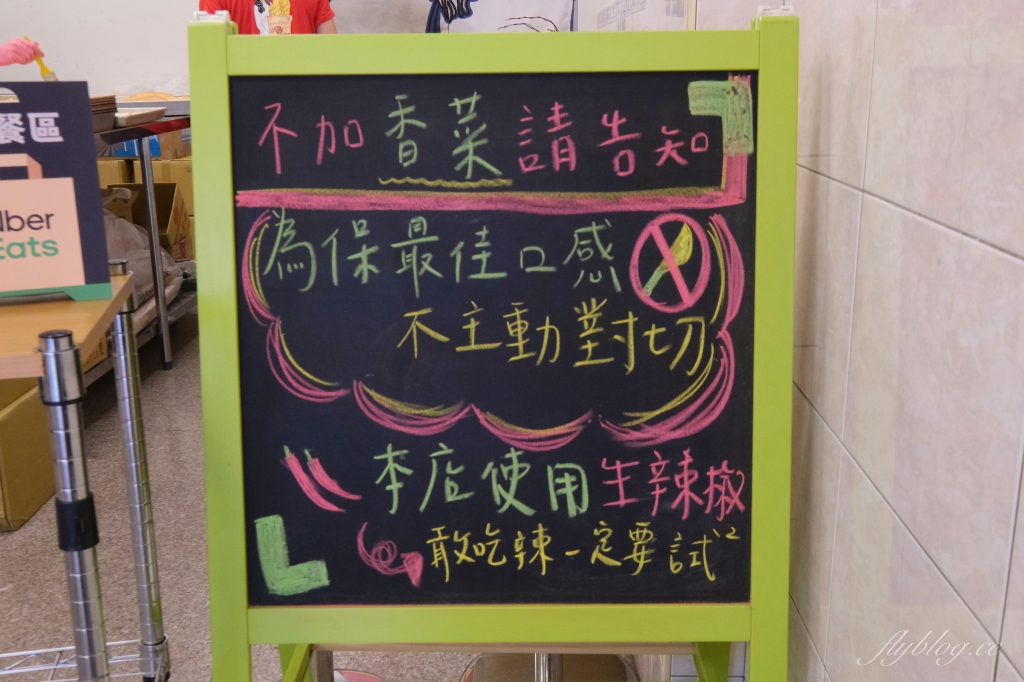 餐區
Uber
Eats
不加香菜請告知
為保最佳口感
不主動對切
本店使用生辣椒
敢吃辣一定要試²
flyblog.cc